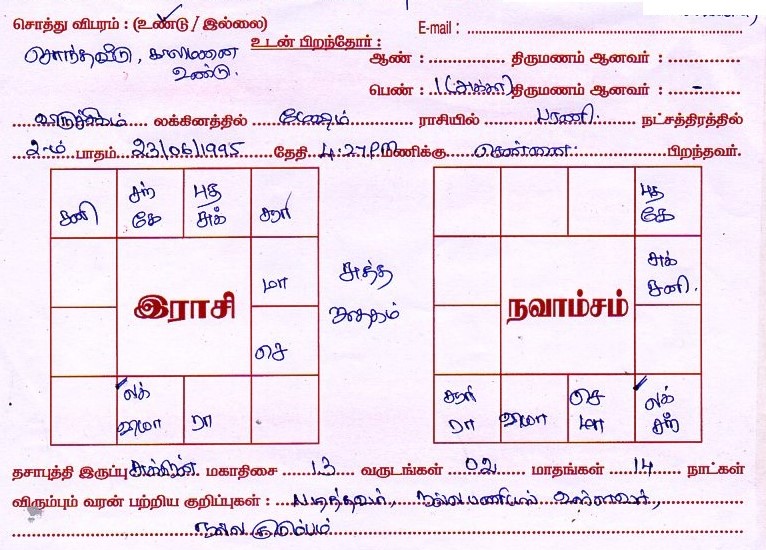 சொத்து விபரம் : (உண்டு / இல்லை)
E-mail :
சொந்தவீடு, காலிமனை
உண்டு.
உடன் பிறந்தோர் :
ஆண் : திருமணம் ஆனவர் :
பெண் : 1 (அக்கா) திருமணம் ஆனவர் : -
விருச்சிகம் லக்கினத்தில் மேஷம் ராசியில் பரணி. நட்சத்திரத்தில்
2-ம் பாதம் 23/06/1995 தேதி 4:27 PM மணிக்கு சென்னை பிறந்தவர்.
சனி
சந்
கே
புத
சுக்
சூரி
மா
செ
லக்
வுமா
ரா
இராசி
சுத்த
ஜாதகம்
புத
கே
சுக்
சனி.
நவாம்சம்
சூரி
ரா
வுமா
செ
மா
லக்
சந்
தசாபுத்தி இருப்பு சுக்கிரன் மகாதிசை 13 வருடங்கள் 02 மாதங்கள் 14 நாட்கள்
விரும்பும் வரன் பற்றிய குறிப்புகள் : படித்தவர், நல்ல பணியில் உள்ளவர்,
நல்ல குடும்பம்